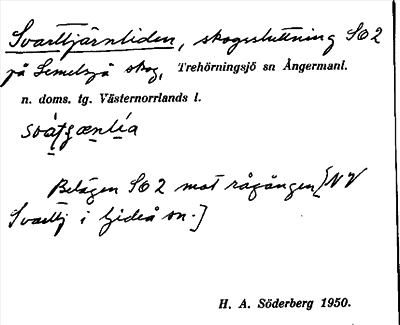 Svarttjärnliden, skogssluttning SO 2
på Lemesjö skog, Trehörningsjö sn Ångermanl.
n. doms. tg. Västernorrlands l.
Belägen SO 2 mot rågången [NV
Svarttj i Gideå sn.]
H. A. Söderberg 1950.